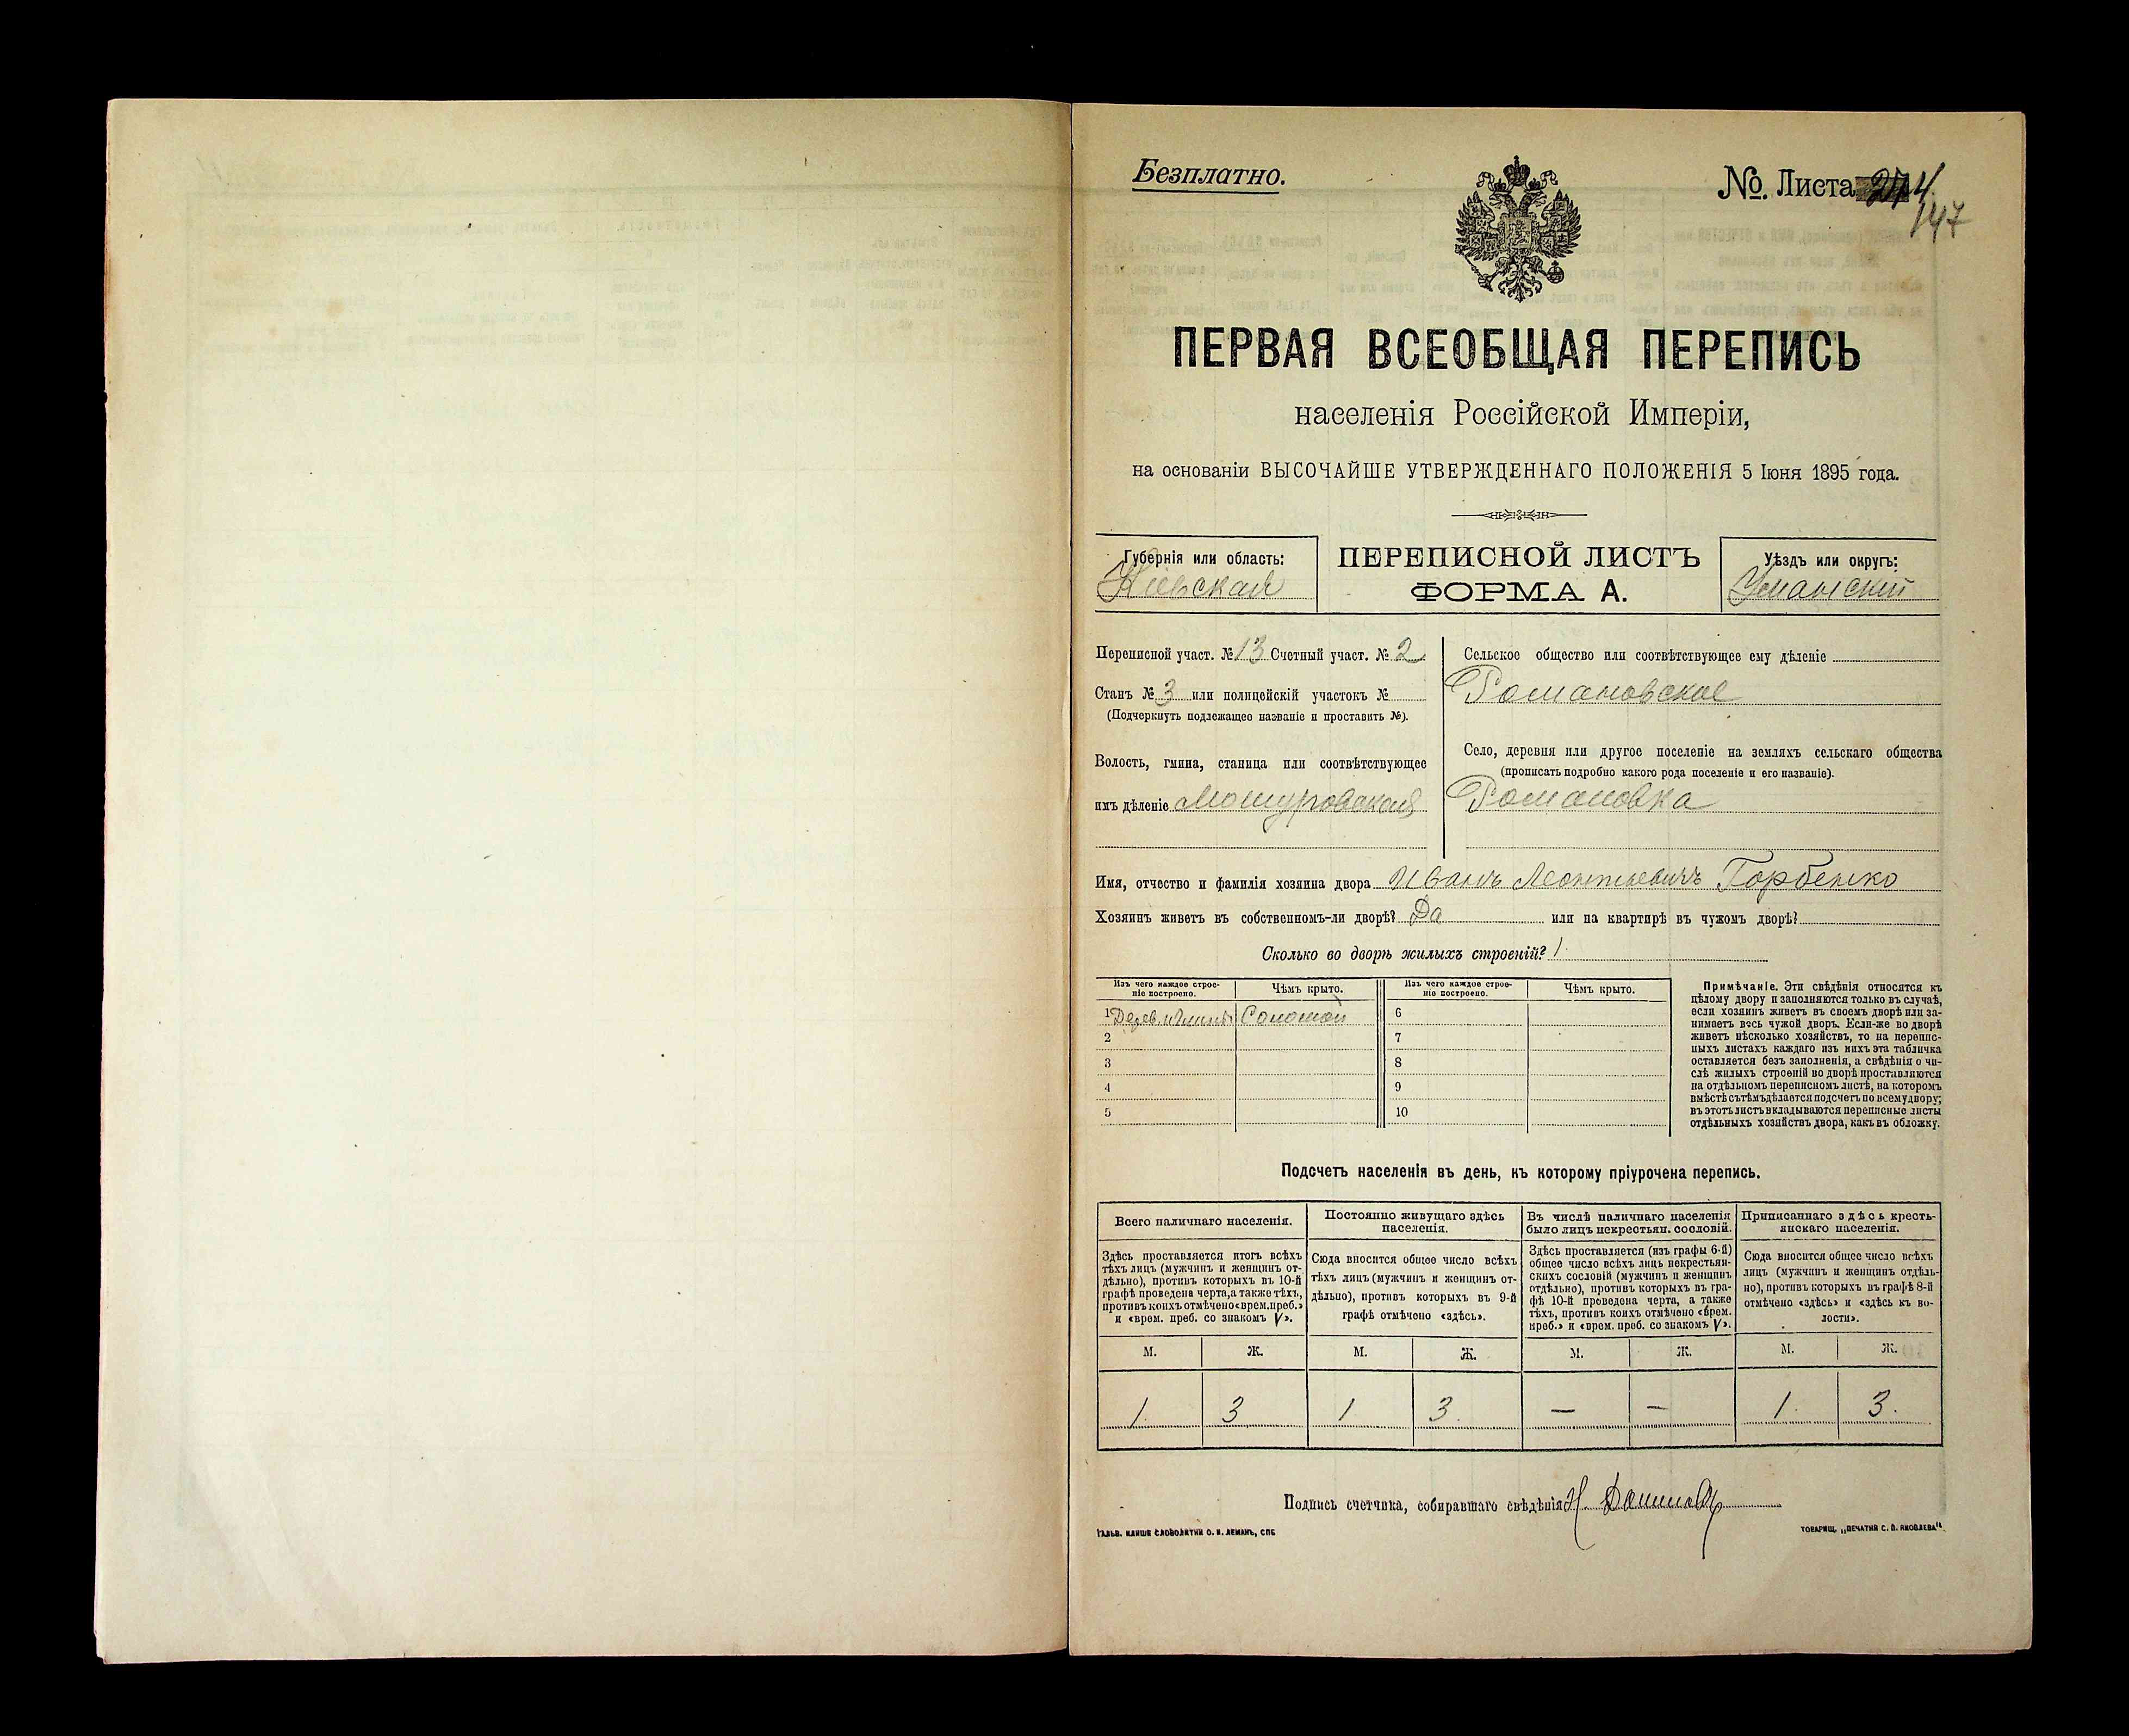 Безплатно.
№. Листа 4
147
ПЕРВАЯ ВСЕОБЩАЯ ПЕРЕПИСЬ
населенія Россійской Имперіи,
на основаніи ВЫСОЧАЙШЕ УТВЕРЖДЕННАГО ПОЛОЖЕНІЯ 5 Іюня 1895 года.
Губернія или область:
Кіевская
ПЕРЕПИСНОЙ ЛИСТЪ
ФОРМА А.
Уѣздъ или округъ:
Уманскій
Переписной участ. № 13 Счетный участ. № 2
Станъ № 3 или полицейскій участокъ №
(Подчеркнуть подлежащее названіе и проставить №).
Волость, гмина, станица или соотвѣтствующее
имъ дѣленіе Мошуровская
Сельское общество или соотвѣтствующее ему дѣленіе
Романовское
Село, деревня или другое поселеніе на земляхъ сельскаго общества
(прописать подробно какого рода поселеніе и его названіе).
Романовка
Имя, отчество и фамилія хозяина двора Иванъ Леонтьевичъ Горбенко
Хозяинъ живетъ въ собственномъ-ли дворѣ? Да или на квартирѣ въ чужомъ дворѣ?
Сколько во дворѣ жилыхъ строеній? 1
Изъ чего каждое строе-
ніе построено.
Чѣмъ крыто.
Изъ чего каждое строе-
ніе построено.
Чѣмъ крыто.
1 Дерев. и глины Соломой 6
2 7
3 8
4 9
5 10
Примѣчаніе. Эти свѣдѣнія относятся къ
цѣлому двору и заполняются только въ случаѣ,
если хозяинъ живетъ въ своемъ дворѣ или за-
нимаетъ весь чужой дворъ. Если-же во дворѣ
живетъ нѣсколько хозяйствъ, то на перепис-
ныхъ листахъ каждаго изъ нихъ эта табличка
оставляется безъ заполненія, а свѣдѣнія о чи-
слѣ жилыхъ строеній во дворѣ проставляются
на отдѣльномъ переписномъ листѣ, на которомъ
вмѣстѣ съ тѣмъ дѣлается подсчетъ по всему двору;
въ этотъ листъ вкладываются переписные листы
отдѣльныхъ хозяйствъ двора, какъ въ обложку.
Подсчетъ населенія въ день, къ которому пріурочена перепись.
Всего наличнаго населенія.
Здѣсь проставляется итогъ всѣхъ
тѣхъ лицъ (мужчинъ и женщинъ от-
дѣльно), противъ которыхъ въ 10-й
графѣ проведена черта, а также тѣхъ,
противъ коихъ отмѣчено «врем. преб.»
и «врем. преб. со знакомъ V».
Постоянно живущаго здѣсь
населенія.
Сюда вносится общее число всѣхъ
тѣхъ лицъ (мужчинъ и женщинъ от-
дѣльно), противъ которыхъ въ 9-й
графѣ отмѣчено «здѣсь».
Въ числѣ наличнаго населенія
было лицъ некрестьян. сословій.
Здѣсь проставляется (изъ графы 6-й)
общее число всѣхъ лицъ некрестьян-
скихъ сословій (мужчинъ и женщинъ
отдѣльно), противъ которыхъ въ гра-
фѣ 10-й проведена черта, а также
тѣхъ, противъ коихъ отмѣчено «врем.
преб.» и «врем. преб. со знакомъ V».
Приписаннаго здѣсь кресть-
янскаго населенія.
Сюда вносится общее число всѣхъ
лицъ (мужчинъ и женщинъ отдѣль-
но), противъ которыхъ въ графѣ 8-й
отмѣчено «здѣсь» и «здѣсь къ во-
лости».
М. Ж. М. Ж. М. Ж. М. Ж.
1. 3 1 3. — — 1. 3.
Подпись счетчика, собиравшаго свѣдѣнія Н.
ГАЛЬВ. КЛИШЕ СЛОВОЛИТНИ О. И. ЛЕМАНЪ, СПБ
ТОВАРИЩ. „ПЕЧАТНЯ С. П. ЯКОВЛЕВА".